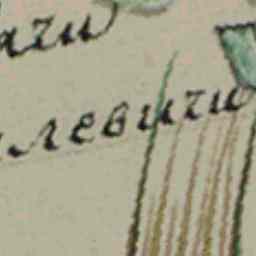 ачи
левичи